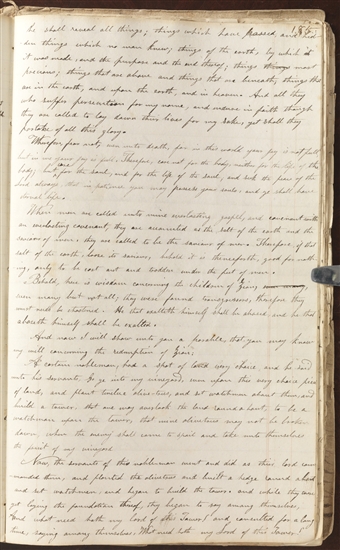 he shall reveal all things; things which have passed, and hid-
den things which no man knew; things of the earth, by which it
was made, and the purpose and the end thereof; things most
precious; things that are above and things that are beneath; things that
are in the earth, and upon the earth, and in heaven. And all they
who suffer persecution for my name, and endure in faith though
they are called to lay down their lives for my sake, yet shall they
partake of all this glory.
Wherefore fear not even unto death, for in this world your joy is not full
but in me your joy is full. Therefore, care not for the body, neither for the life of the
body; but care for the soul, and for the life of the soul, and seek the face of the
Lord always, that in patience you may possess your souls, and ye shall have
eternal life.
When men are called unto mine everlasting gospel, and covenant with
an everlasting covenant, they are accounted as the salt of the earth and the
savour of men. They are called to be the savour of men. Therefore, if that
salt of the earth loose its savour, behold it is thenceforth, good for noth-
ing, only to be cast out and trodden under the feet of men.
Behold, here is wisdom concerning the children of Zion;
even many but not all; they were found transgressors, therefore they
must needs be chastened. He that exalteth himself shall be abased, and he that
abaseth himself shall be exalted.
And now I will show unto you a parable, that you may know
my will concerning the redemption of Zion;
A certain nobleman, had a spot of land very choice, and he said
unto his servants, Go ye into my vineyard, even upon this very choice piece
of land, and plant twelve olive trees, and set watchmen about them, and
build a tower, that one may overlook the land round about, to be a
watchman upon the tower, that mine olive trees may not be broken
down, when the enemy shall come to spoil and take unto themselves
the fruit of my vineyard.
Now, the servants of this nobleman went and did as their lord com-
manded them, and planted the olive trees and built a hedge round about
and set watchmen, and began to build the tower. and while they were
yet laying the foundation thereof, they began to say among themselves,
"And what need hath my lord of this tower? and consulted for a long
time, saying among themselves, What need hath my Lord of this tower,